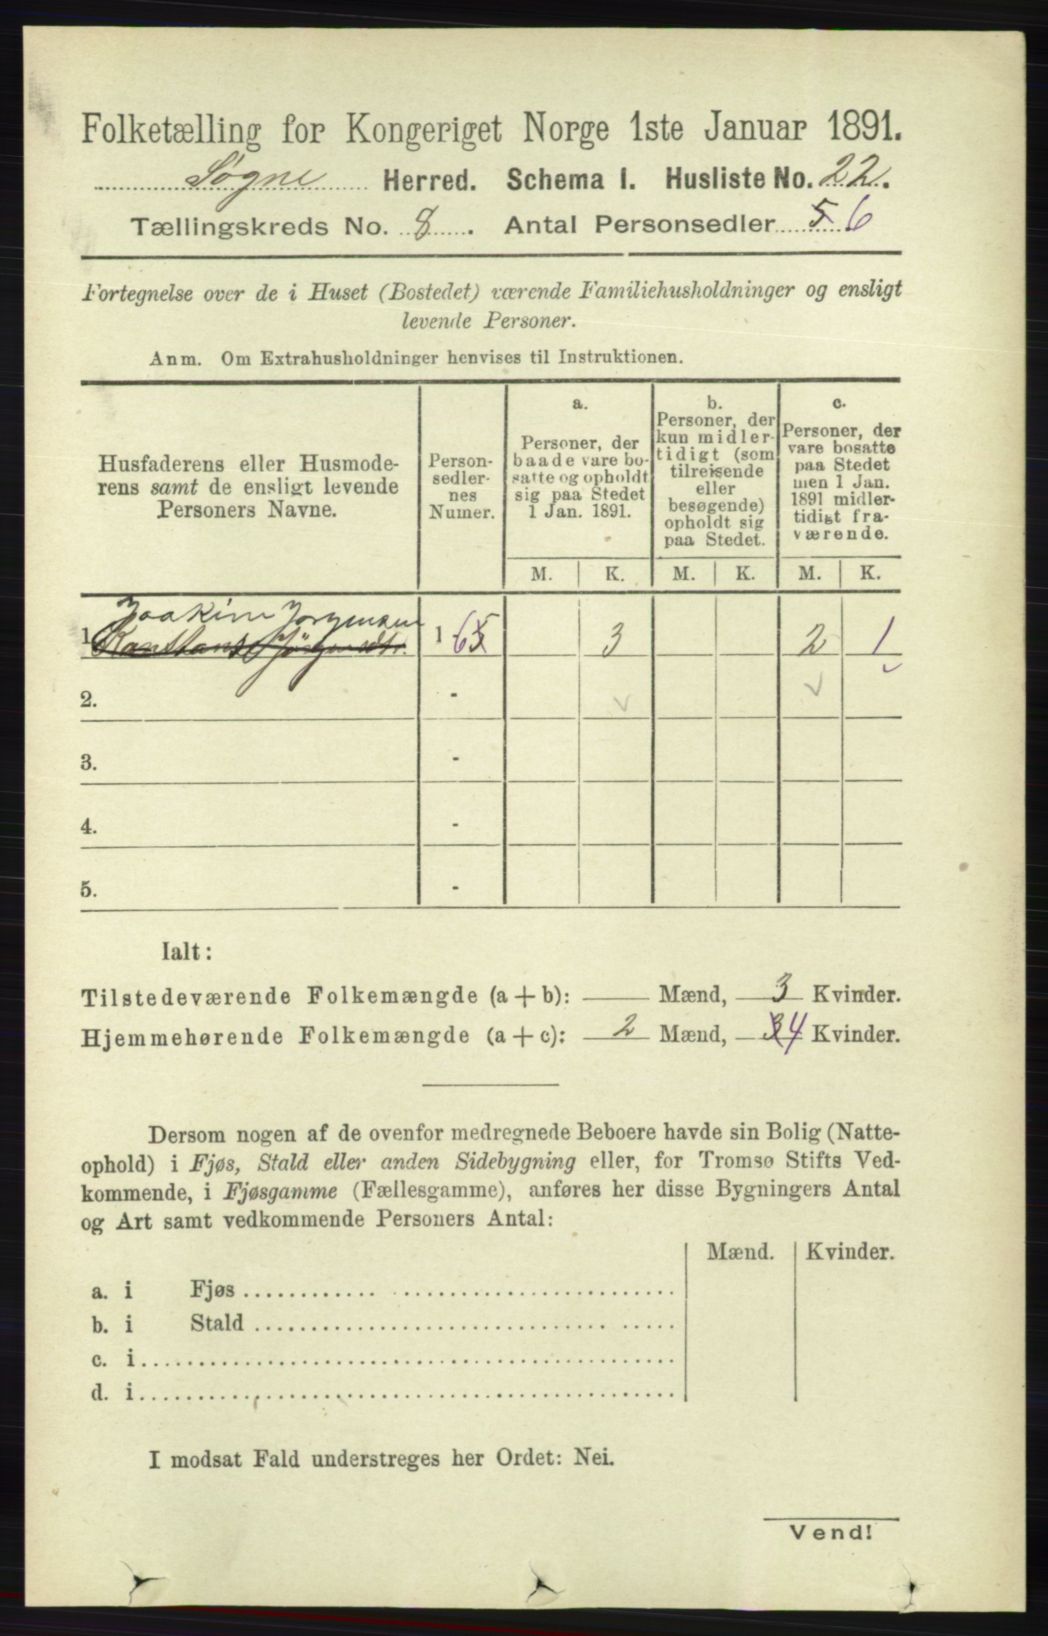 Folketælling for Kongeriget Norge 1ste Januar 1891.
Søgne Herred. Schema I. Husliste No. 22.
Tællingskreds No. 8. Antal Personsedler 5 6
Fortegnelse over de i Huset (Bostedet) værende Familiehusholdninger og ensligt
levende Personer.
Anm. Om Extrahusholdninger henvises til Instruktionen.
Husfaderens eller Husmode-
rens samt de ensligt levende
Personers Navne.
Person-
sedler-
nes
Numer.
a.
Personer, der
baade vare bo-
satte og opholdt
sig paa Stedet
1 Jan. 1891.
b.
Personer, der
kun midler-
tidigt (som
tilreisende
eller
besøgende)
opholdt sig
paa Stedet.
c.
Personer, der
vare bosatte
paa Stedet
men 1 Jan.
1891 midler-
tidigt fra-
værende.
M. K. M. K. M. K.
Joakim Jørgensen
1 1 6 5 3 2 1
2. -
3. -
4. -
5. -
Ialt:
Tilstedeværende Folkemængde (a + b): Mænd, 3 Kvinder.
Hjemmehørende Folkemængde (a + c): 2 Mænd, 3 4 Kvinder.
Dersom nogen af de ovenfor medregnede Beboere havde sin Bolig (Natte-
ophold) i Fjøs, Stald eller anden Sidebygning eller, for Tromsø Stifts Ved-
kommende, i Fjøsgamme (Fællesgamme), anføres her disse Bygningers Antal
og Art samt vedkommende Personers Antal:
Mænd. Kvinder.
a. i Fjøs
b. i Stald
c. i
d. i
I modsat Fald understreges her Ordet: Nei.
Vend!